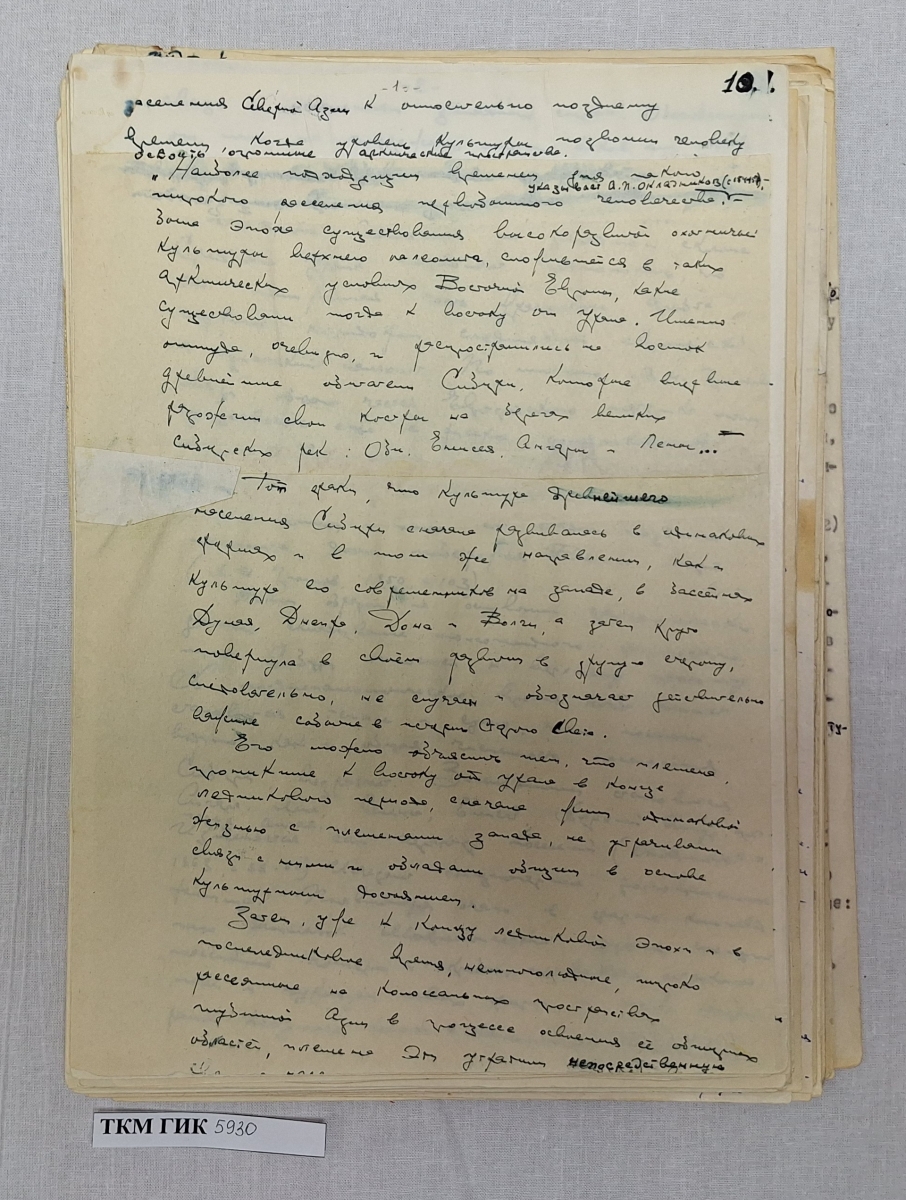 -1-
10.!
заселения Северной Азии к относительно позднему
времени, когда уровень культуры позволил человеку
освоить огромные арктические пространства.
„Наиболее подходящим временем для такого
указывает А.П. Окладников
широкого расселения первобытного человечества. –
была эпоха существования высокоразвитой охотничьей
культуры верхнего палеолита, сложившейся в таких
арктических условиях Восточной Европы, какие
существовали тогда к востоку от Урала. Именно
оттуда, очевидно, и распространились на восток
древнейшие обитатели Сибири, которые впервые
разожгли свои костры на берегах великих
сибирских рек: Оби, Енисея, Ангары и Лены..."
Тот факт, что культура древнейшего
населения Сибири сначала развивалась в одинаковых
формах и в том же направлении, как и
культура его современников на западе, в бассейнах
Дуная, Днепра, Дона и Волги, а затем круто
повернула в своём развитии в другую сторону,
следовательно, не случаен и обозначает действительно
важные события в истории Старого Света.
Его можно объяснить тем, что племена,
проникшие к востоку от Урала в конце
ледникового периода, сначала жили одинаковой
жизнью с племенами запада, не утрачивали
связи с ними и обладали общим в основе
культурным достоянием.
Затем, уже к концу ледниковой эпохи и в
послеледниковое время, немноголюдные, широко
рассеянные на колоссальных пространствах
глубинной Азии в процессе освоения её обширных
областей, племена эти утратили непосредственную
ТКМ ГИК 5930